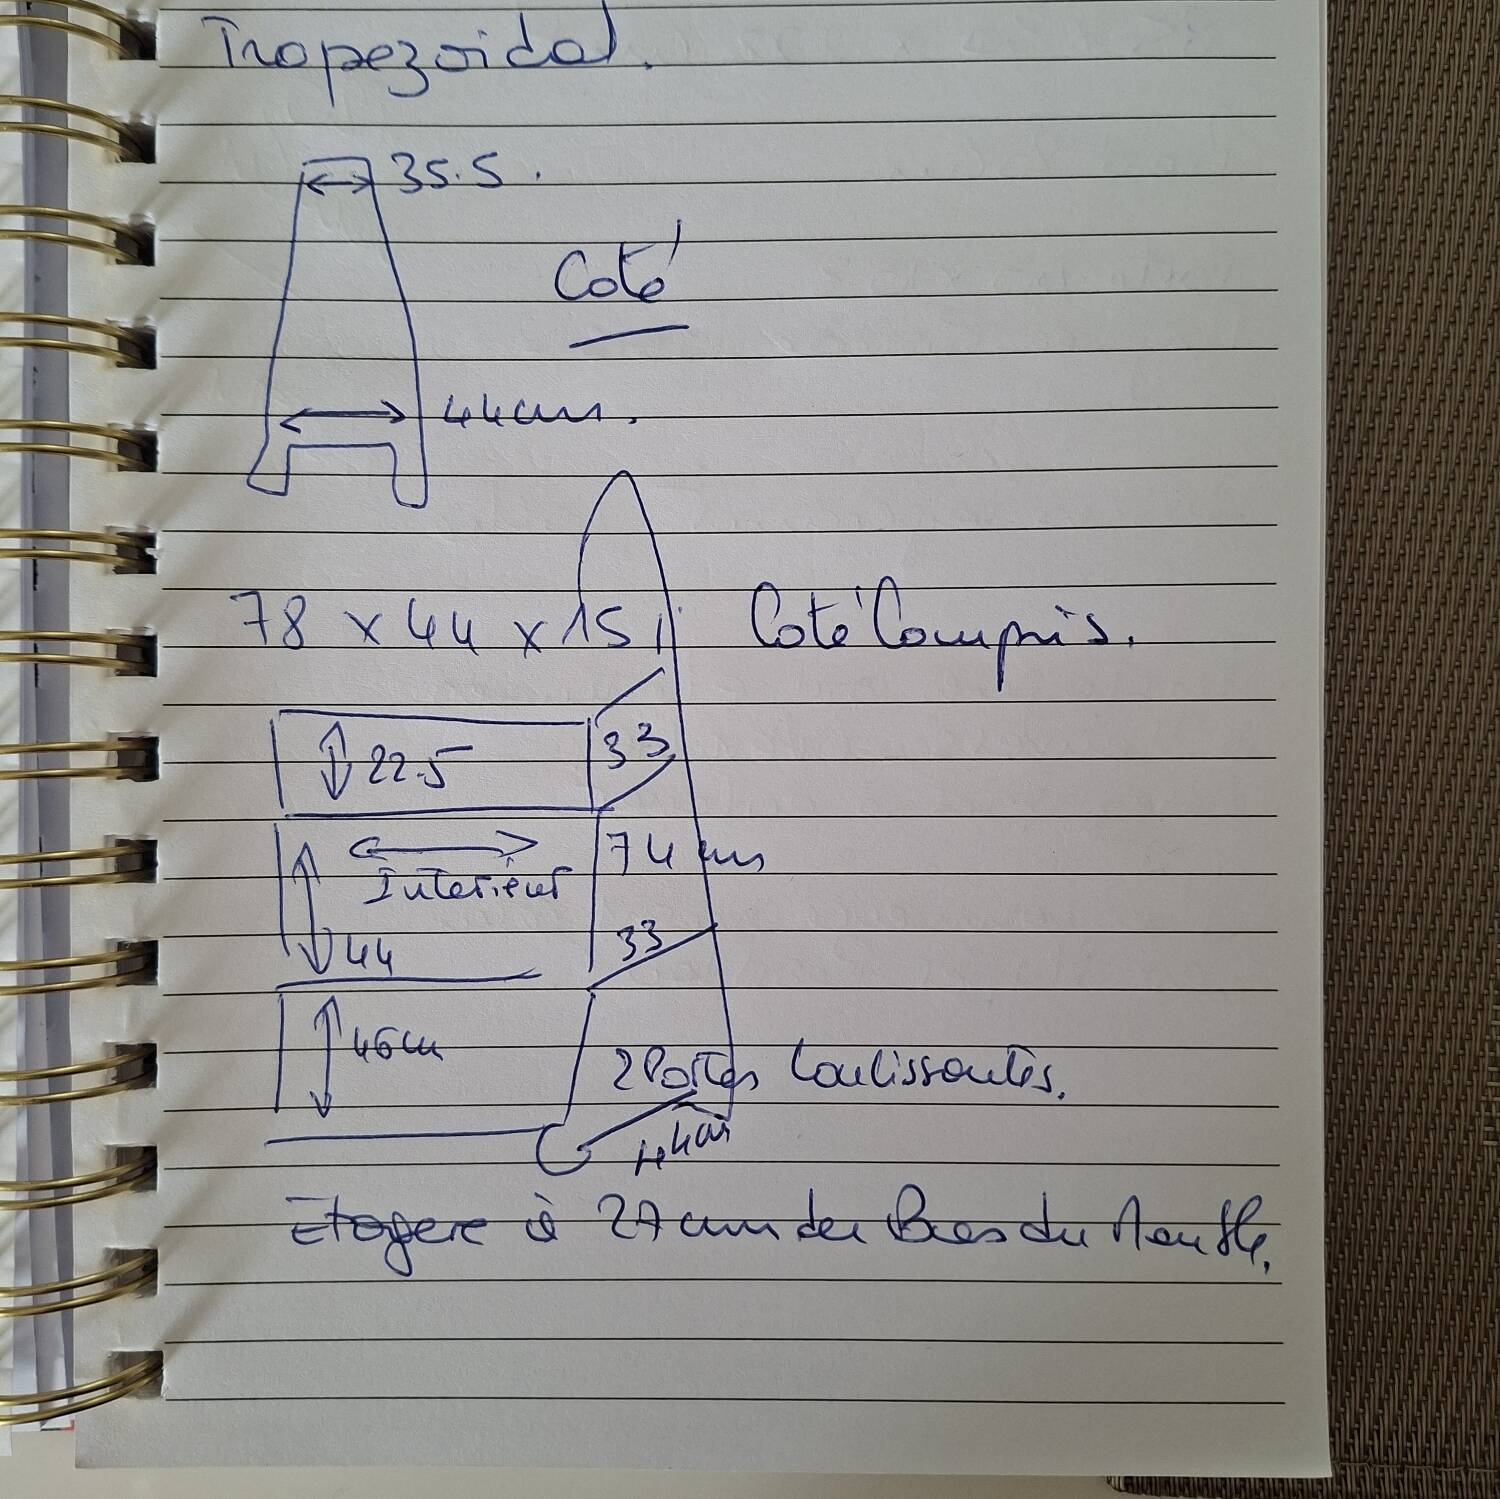 Trapezoidal.
35.5.
Coté
44cm.
78 x 44 x 151 Coté Compris.
22.5 33
74 cm
Interieur
44 33
46cm
2 Portes Coulissantes.
44cm
Etagere à 27 cm du Bas du Meuble.